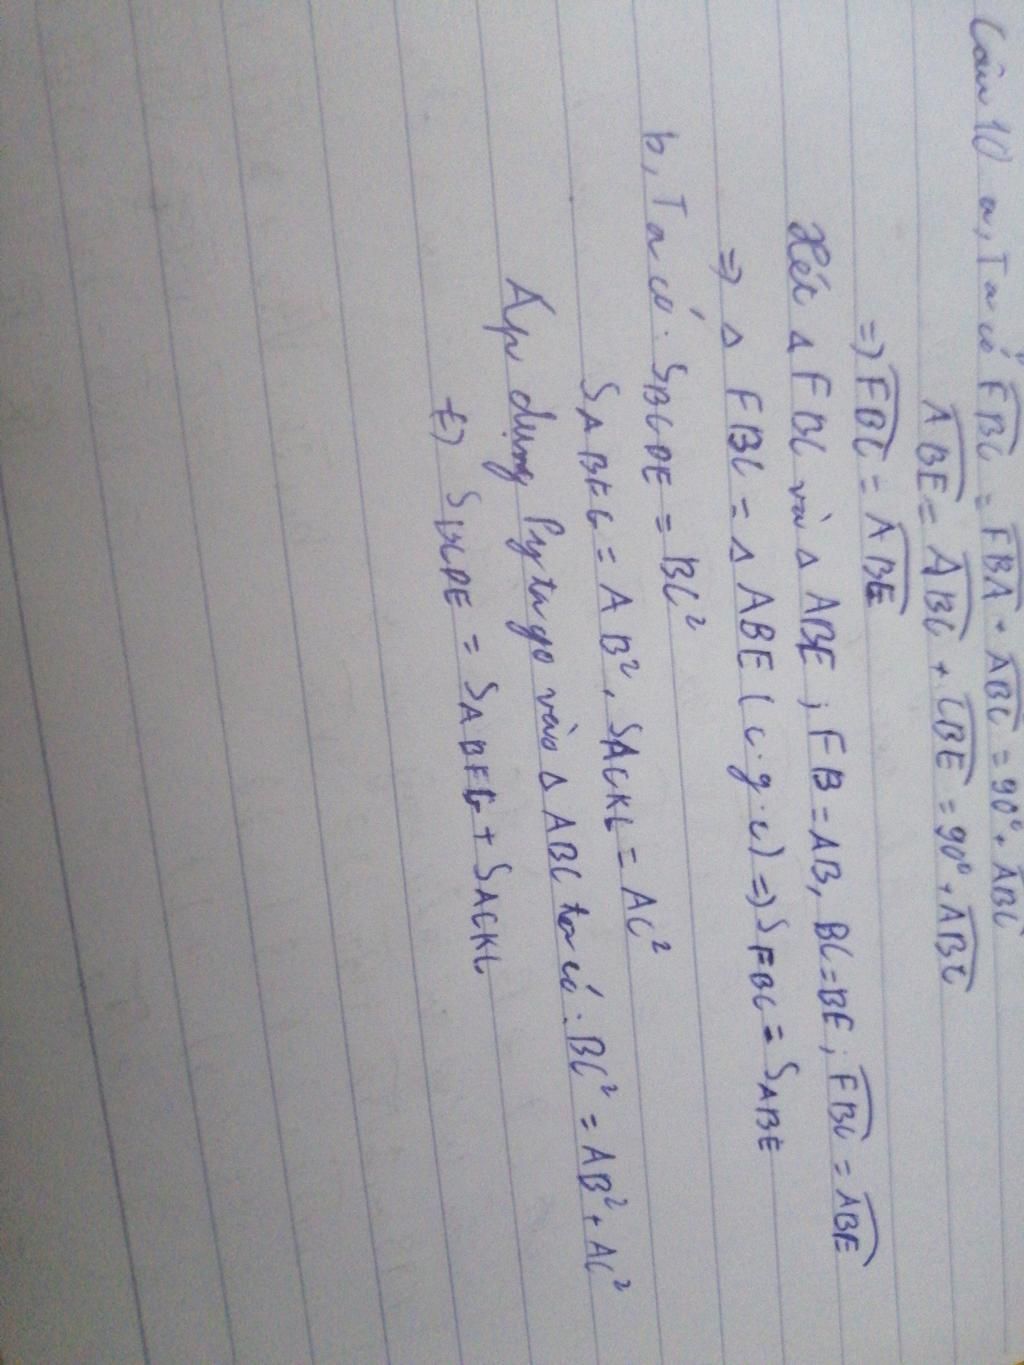 Câu 10 a, Ta có FBC = FBA + ABC = 90° + ABC
ABE = ABC + CBE = 90° + ABC
=> FBC = ABE
Xét Δ FBC và Δ ABE ; FB = AB, BC = BE ; FBC = ABE
=> Δ FBC = Δ ABE (c.g.c) => SFBC = SABE
b, Ta có : SBCDE = BC²
SABFG = AB², SACKL = AC²
Áp dụng Pytago vào Δ ABC ta có : BC² = AB² + AC²
(=) SBCDE = SABFG + SACKL